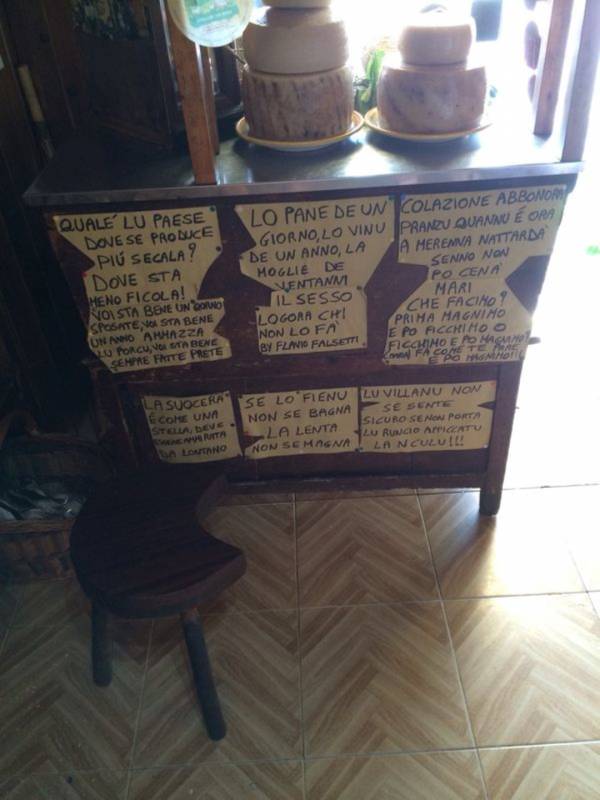 QUALÉ LU PAESE
DOVE SE PRODUCE
PIÚ SEGALA?
DOVE STA
MENO FICOLA!
VOI STA BENE UN GIORNO
SPOSATE, VOI STA BENE
UN ANNO AMMAZZA
LU PORCU, VOI STA BENE
SEMPRE FATTE PRETE
LO PANE DE UN
GIORNO, LO VINU
DE UN ANNO, LA
MOGLIE DE
VENTANNI
IL SESSO
LOGORA CHI
NON LO FÀ
BY FLAVIO FALSETTI
COLAZIONE ABBONORA
PRANZU QUANNU É ORA
A MERENNA NATTARDÀ
SENNO NON
PO CENÀ
MARI
CHE FACIMO?
PRIMA MAGNIMO
E PO FICCHIMO O
FICCHIMO E PO MAGNIMO
FÀ COME TE PARE
E PO MAGNIMO!!!
LA SUOCERA
É COME UNA
STELLA, DEVE
ESSERE AMMIRATA
DA LONTANO
SE LO FIENU
NON SE BAGNA
LA LENTA
NON SE MAGNA
LU VILLANU NON
SE SENTE
SICURO SE NON PORTA
LU RUNCIO APPICCATU
LA NCULU!!!